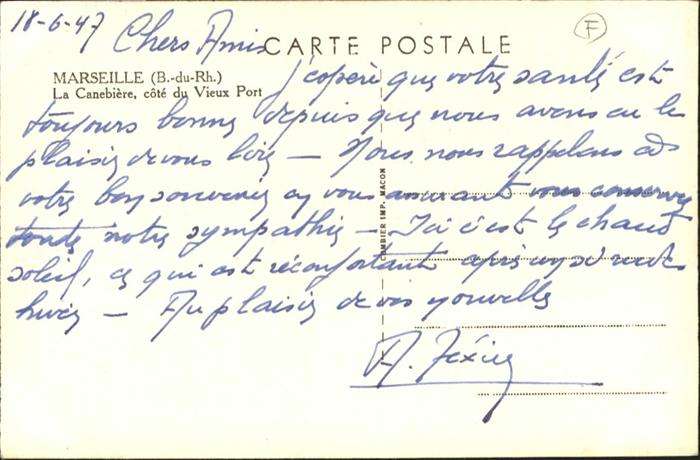 18-6-47 Chers Amis
CARTE POSTALE
F
MARSEILLE (B.-du-Rh.)
La Canebière, côté du Vieux Port
J'espère que votre santé est
toujours bonne depuis que nous avons eu le
plaisir de vous voir — Nous nous rappelons à
votre bon souvenir en vous assurant vous conserver
toute notre sympathie — Ici c'est le chaud
soleil, ce qui est réconfortant après un si rude
hiver — Au plaisir de vos nouvelles
A. Texier
COMBIER IMP. MACON